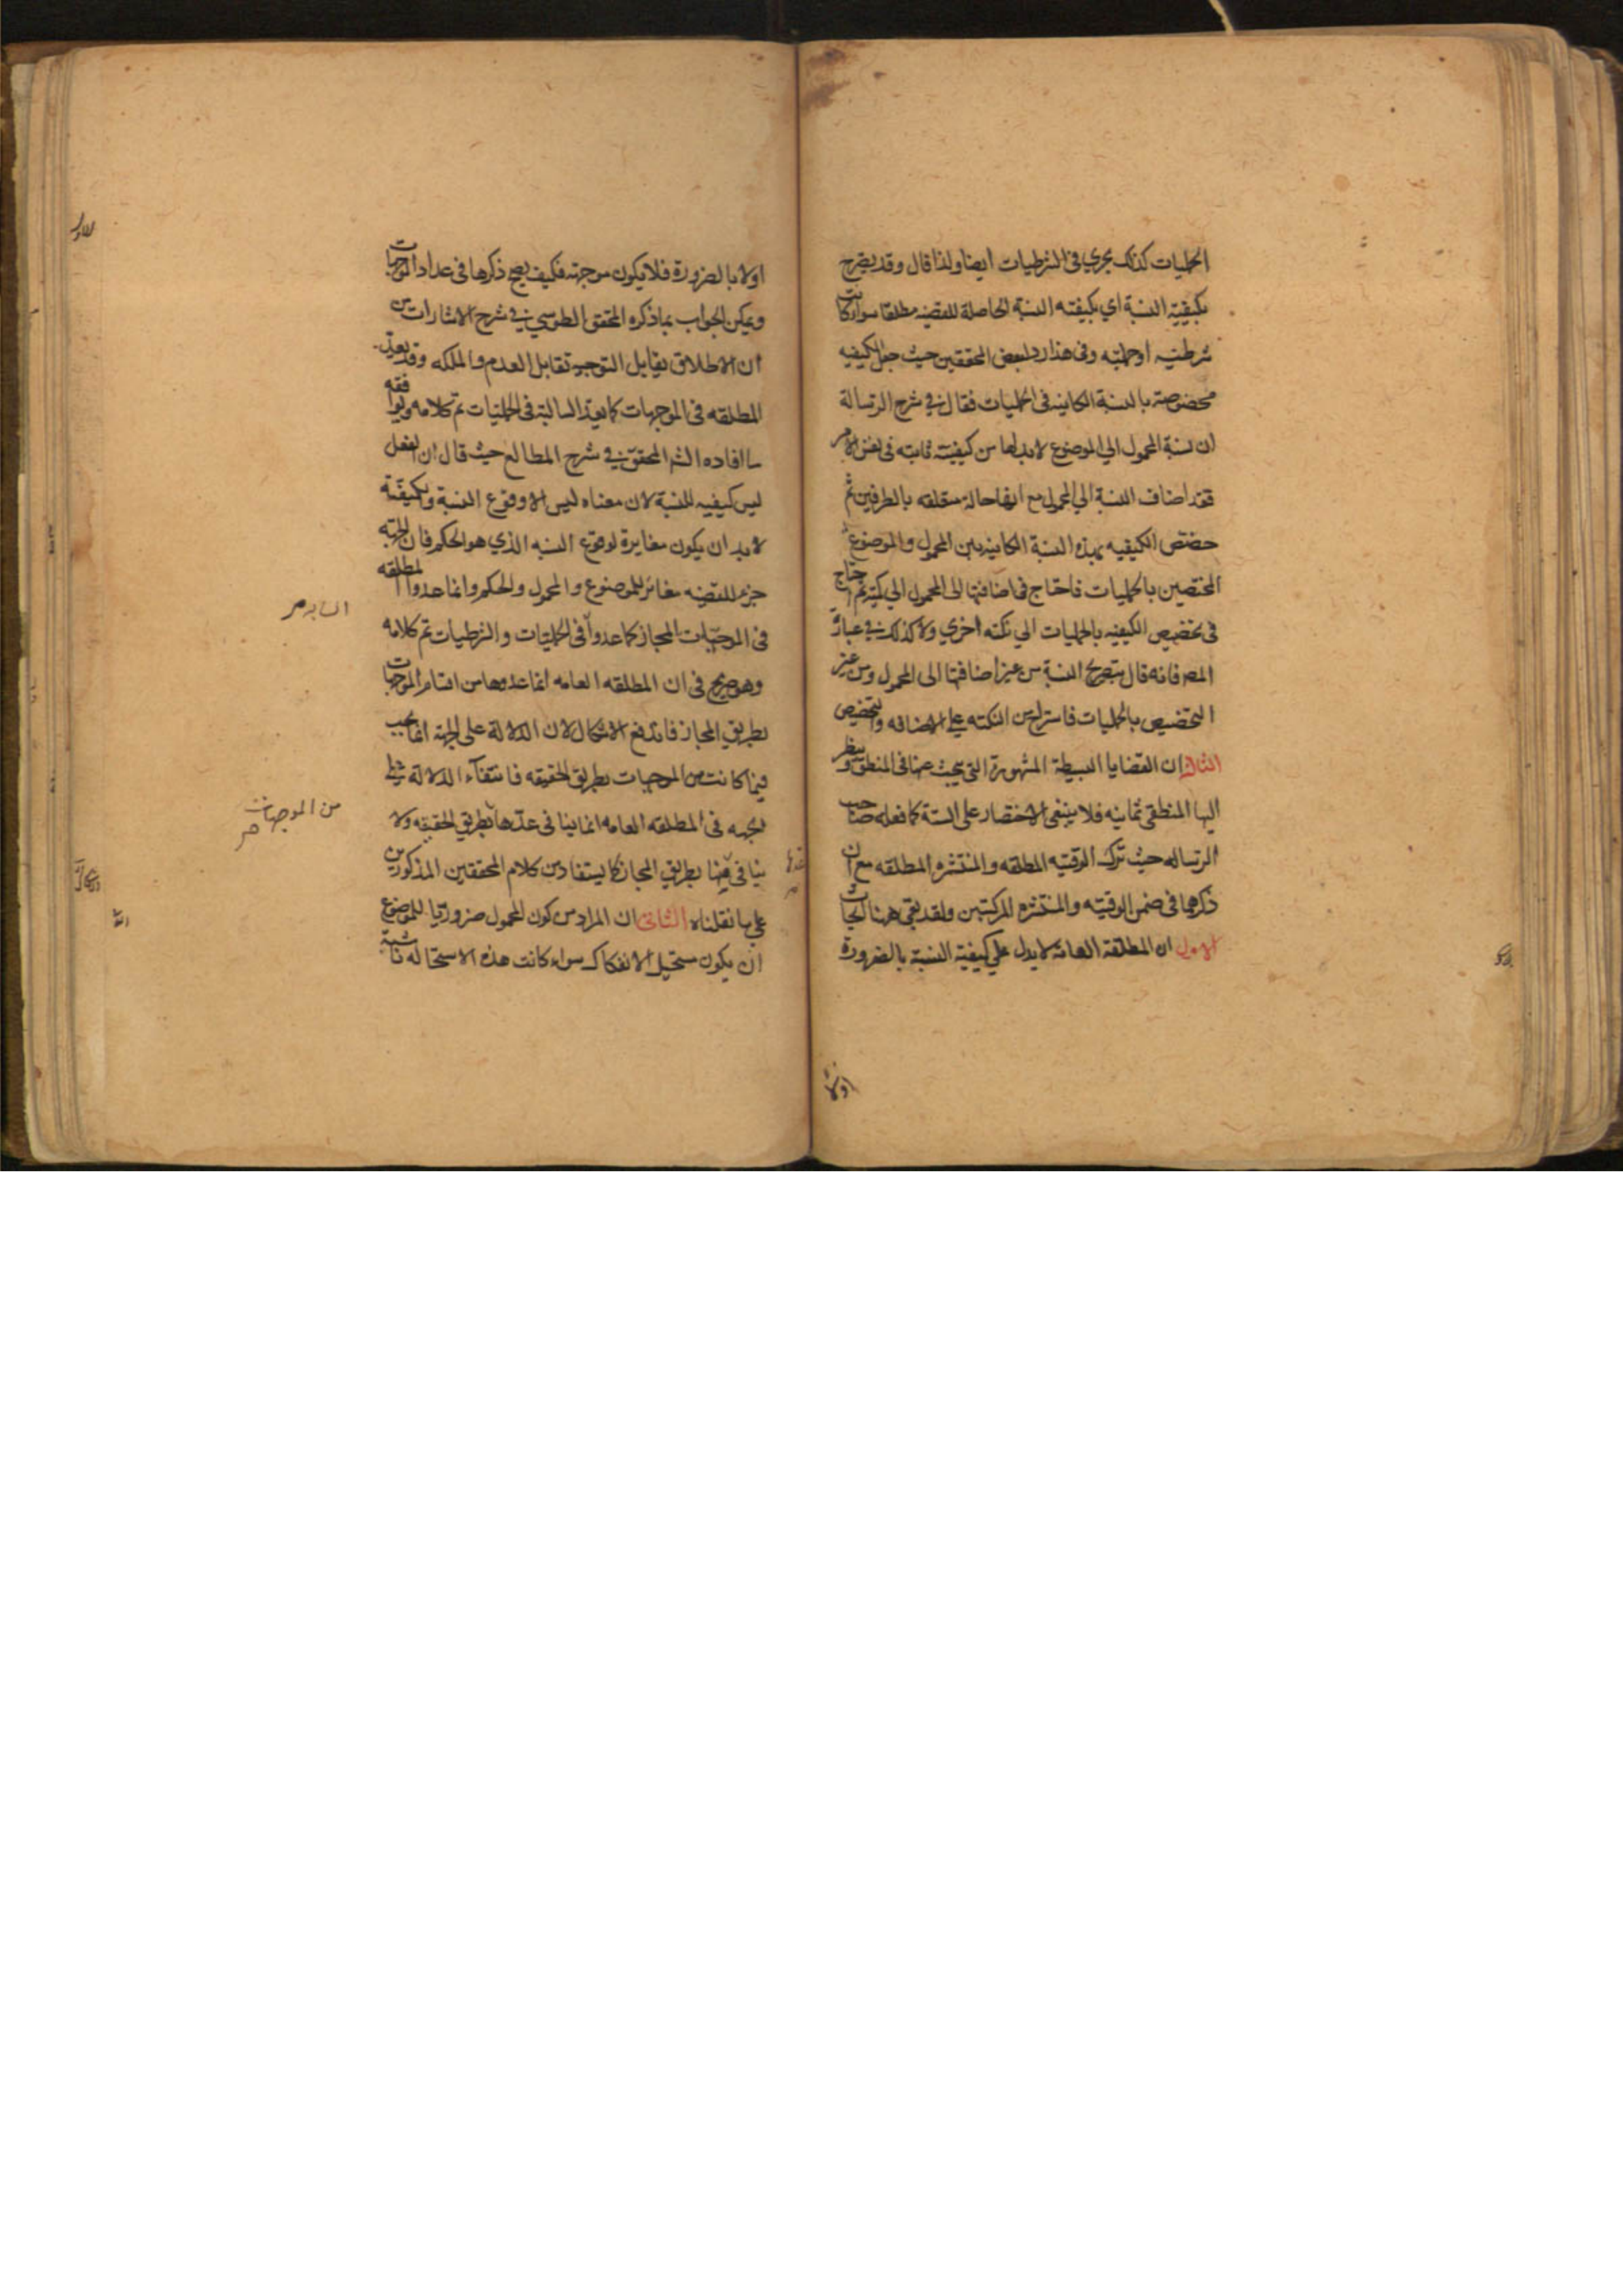 الحمليات كذلك يجري في الشرطيات ايضا ولذا قال وقد يصرح
بكيفية النسبة اي بكيفيته النسبة الحاصلة للقضيه مطلقا سواء كانت
شرطيه او حمليه وفي هذا رد لبعض المحققين حيث جعل الكيفيه
مخصوصة بالنسبة الكاينه في الحمليات فقال في شرح الرسالة
ان نسبة المحمول الي الموضوع لا بد لها من كيفيته ثابته في نفس الامر
فقد اضاف النسبة الي المحمول مع انها حالة متعلقه بالطرفين ثم
خصص الكيفيه بهذه النسبة الكاينه بين المحمول والموضوع
المختصين بالحمليات فاحتاج في اضافتها الى المحمول الي نكتة ثم احتاج
في تخصيص الكيفيه بالحمليات الي نكته اخري ولا كذلك في عبارة
المص فانه قال بتصريح النسبة من غير اضافتها الى المحمول ومن غير
التخصيص بالحمليات فاستراح من النكته علي الاضافه والتخصيص
الثالث ان القضايا البسيطة المشهورة التي يبحث عنها في المنطق وينظر
اليها المنطقي ثمانيه فلا ينبغي الاختصار على الستة كما فعله صاحب
الرساله حيث ترك الوقتيه المطلقه والمنتشره المطلقه مع ان
ذكرهما في ضمن الوقتيه والمنتشره المركبتين ولقد بقي ههنا ابحاث
الاول ان المطلقة العامة لا يدل علي كيفية النسبة بالضرورة
اولا
اولا بالضرورة فلا يكون موجهة فكيف يصح ذكرها في عداد الموجهات
ويمكن الجواب بما ذكره المحقق الطوسي في شرح الاشارات من
ان الاطلاق يقابل التوجيه تقابل العدم والملكه وقد يعد
المطلقه في الموجهات كما يعد السالبة في الحمليات تم كلامه ويوافقه
ما افاده الش المحقق في شرح المطالع حيث قال ان الفعل
ليس كيفيه للنسبة لان معناه ليس الا وقوع النسبة والكيفية
لا بد ان يكون مغايرة لوقوع النسبه الذي هو الحكم فان الجهة
جزء للقضيه مغائر للموضوع والمحمول والحكم وانما عدوا المطلقه
في الموجهات بالمجاز كما عدوا في الحمليات والشرطيات تم كلامه
السالبه صح
وهو صريح في ان المطلقه العامه انما عدوها من اقسام الموجهات
بطريق المجاز فاندفع الاشكال لان الدلالة على الجهة انما يجب
فيما كانت من الموجهات بطريق الحقيقه فانتفاء الدلالة علي
الجهه في المطلقه العامه انما ينافي عدها بطريق الحقيقه ولا
من الموجهات صح
ينافي منها بطريق المجاز كما يستفاد من كلام المحققين المذكورين
عدها صح
علي ما نقلناه الثاني ان المراد من كون المحمول ضروريا للموضوع
ان يكون مستحيل الانفكاك سواء كانت هذه الاستحاله ناشية